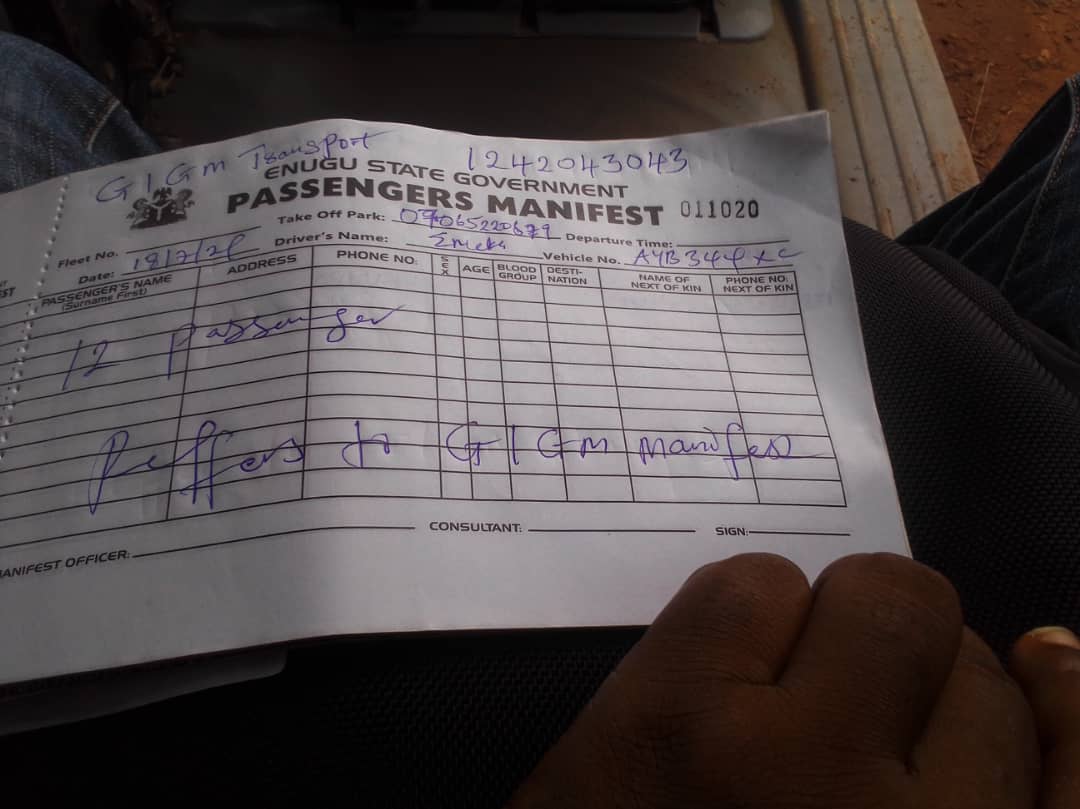 GIGM Transport 1242043043
ENUGU STATE GOVERNMENT
PASSENGERS MANIFEST 011020
Take Off Park: 09065220679 Departure Time:
Fleet No. Driver's Name: Emeka Vehicle No. AYB344XC
Date: 18/7/21
PASSENGER'S NAME (Surname First) ADDRESS PHONE NO: SEX AGE BLOOD GROUP DESTI-NATION NAME OF NEXT OF KIN PHONE NO: NEXT OF KIN
12 passenger
Reffers to GIGM manifest
MANIFEST OFFICER: CONSULTANT: SIGN: